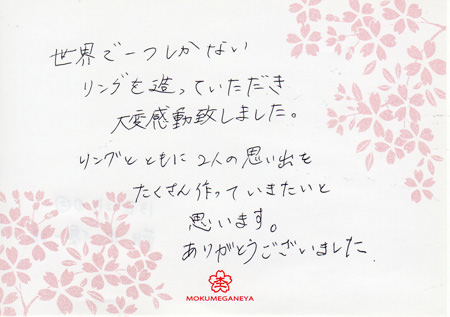 世界で一つしかない
リングを造っていただき
大変感動致しました。
リングとともに2人の思い出を
たくさん作っていきたいと
思います。
ありがとうございました
MOKUMEGANEYA